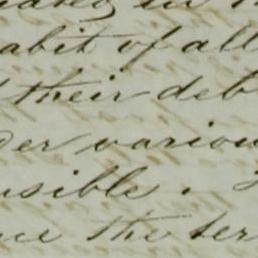 in
abit of all
their deb
er variou
nsible.
nce the ter